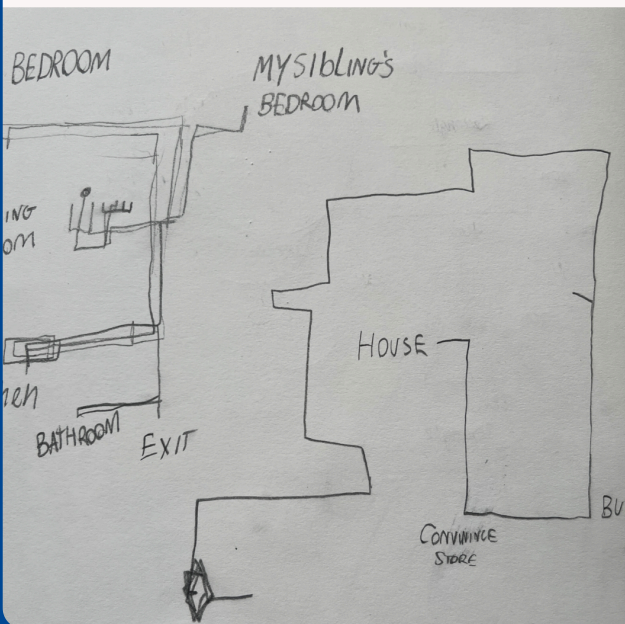 BEDROOM
MY SIBLING'S
BEDROOM
ING
OM
HOUSE
hen
BATHROOM
EXIT
BU
CONVININCE
STORE